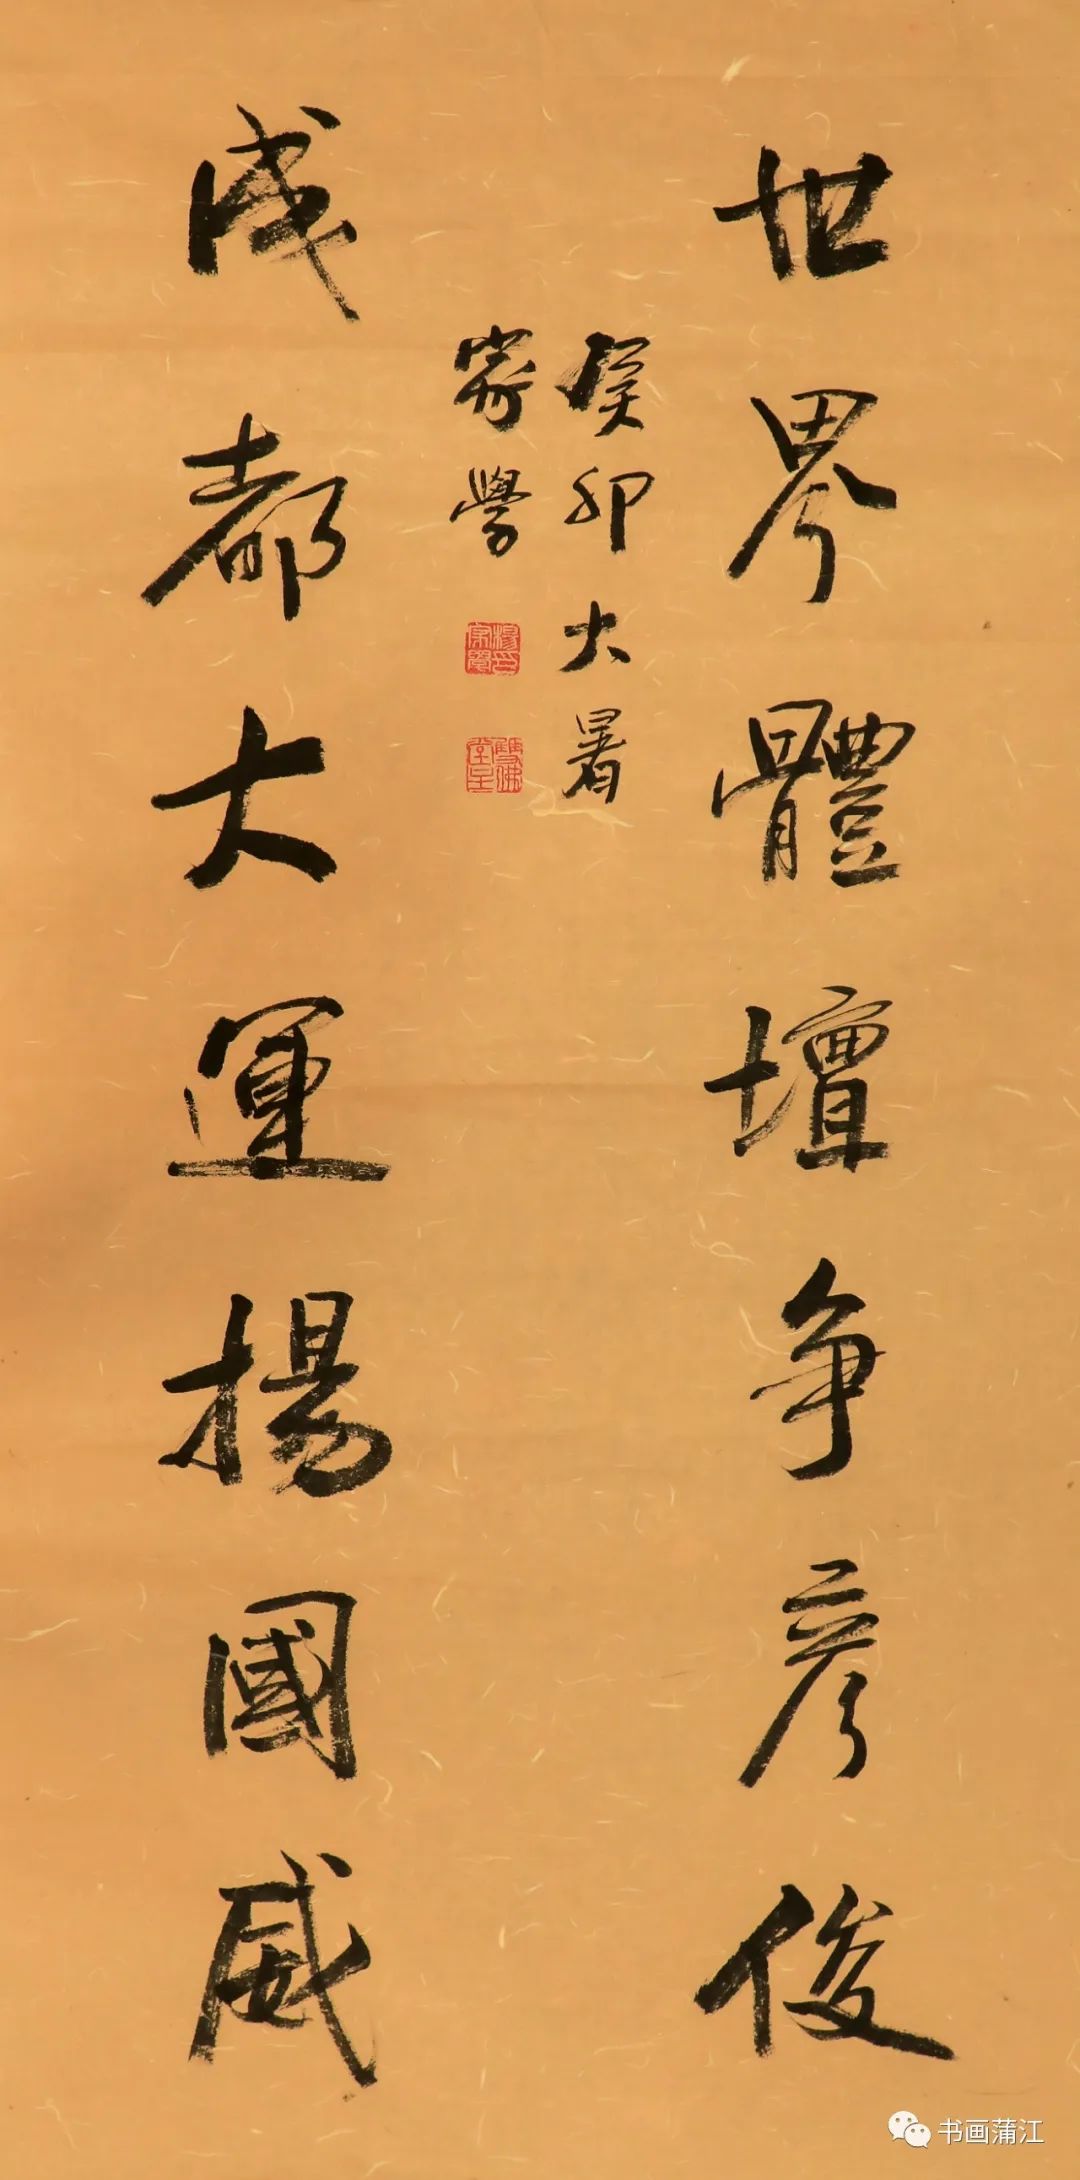 世界體壇争彦俊
成都大運揚國威
癸卯大暑
家學
书画蒲江